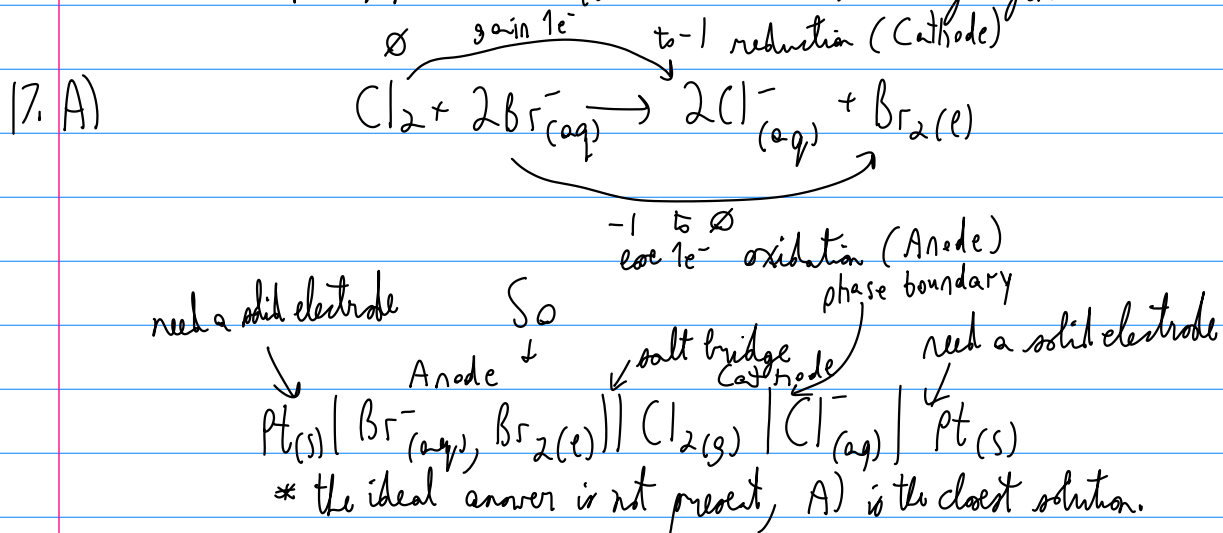 Ø gain 1e⁻ to -1 reduction (Cathode)
17. A) Cl₂ + 2Br⁻(aq) → 2Cl⁻(aq) + Br₂(l)
-1 to Ø
lose 1e⁻ oxidation (Anode)
phase boundary
need a solid electrode So need a solid electrode
↓ salt bridge
Anode Cathode
Pt(s) | Br⁻(aq), Br₂(l) || Cl₂(g) | Cl⁻(aq) | Pt(s)
* the ideal answer is not present, A) is the closest solution.